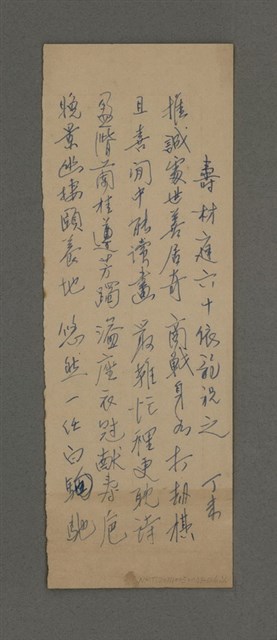 壽材庭六十依韵祝之 丁未
推誠處世善居奇 商戰身如打劫棋
且喜閒中能讀畫 最難忙裡更耽詩
盈階蘭桂遵芳躅 溢座衣冠献壽卮
晚景幽棲頤養地 悠然一任白駒馳